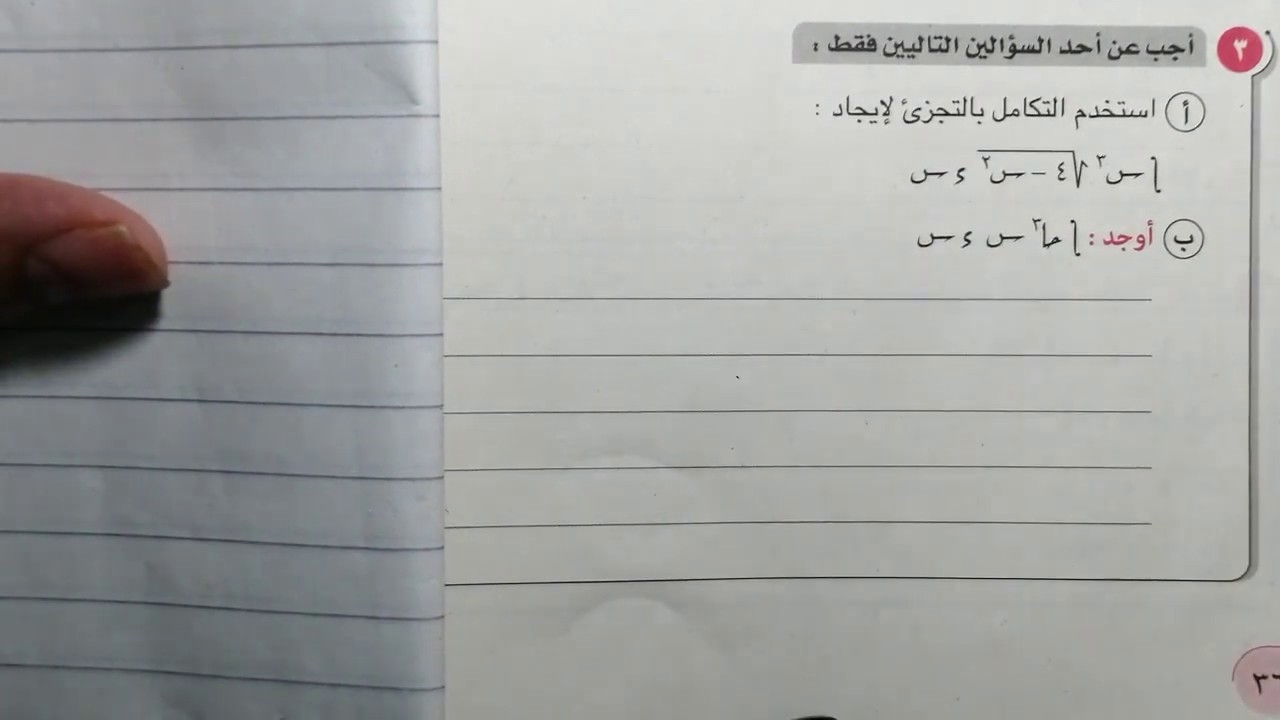 ٣ أجب عن أحد السؤالين التاليين فقط :
أ استخدم التكامل بالتجزئ لإيجاد :
∫ س³ √(٤ − س²) ء س
ب أوجد : ∫ حا³ س ء س